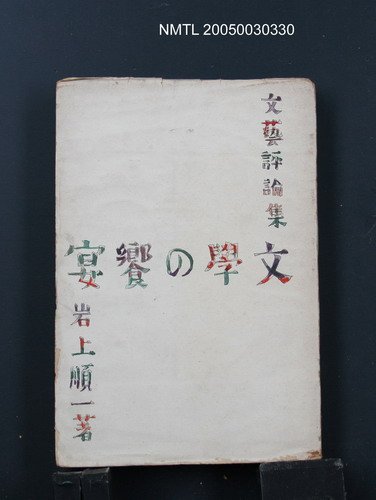 NMTL 20050030330
文藝評論集
文學の饗宴
岩上順一著